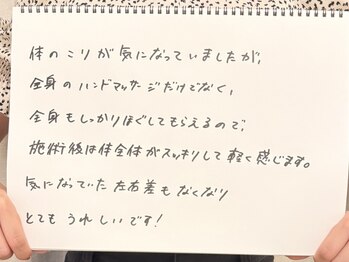 体のこりが気になっていましたが、
全身のハンドマッサージだけでなく、
全身もしっかりほぐしてもらえるので、
施術後は体全体がスッキリして軽く感じます。
気になっていた左右差もなくなり
とてもうれしいです!